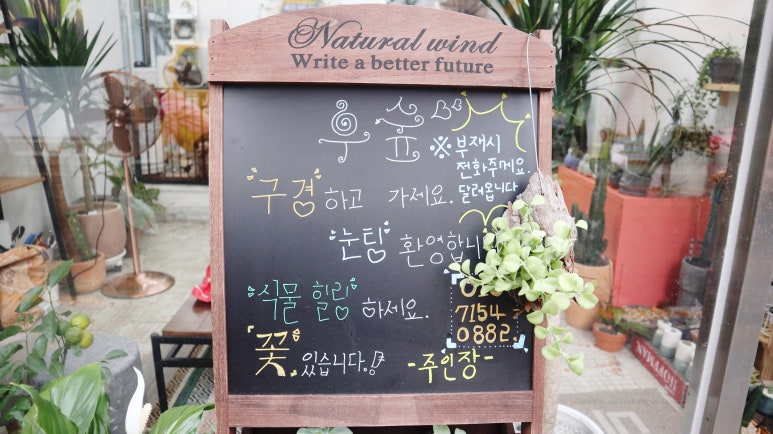 Natural wind
Write a better future
후 쇼
※부재시
전화주께요.
달려옵니다
"구경"하고 가세요.
"눈팅" 환영합니
"식물 힐링" 하세요.
7154
0882
"꽃" 있습니다!
-주인장-